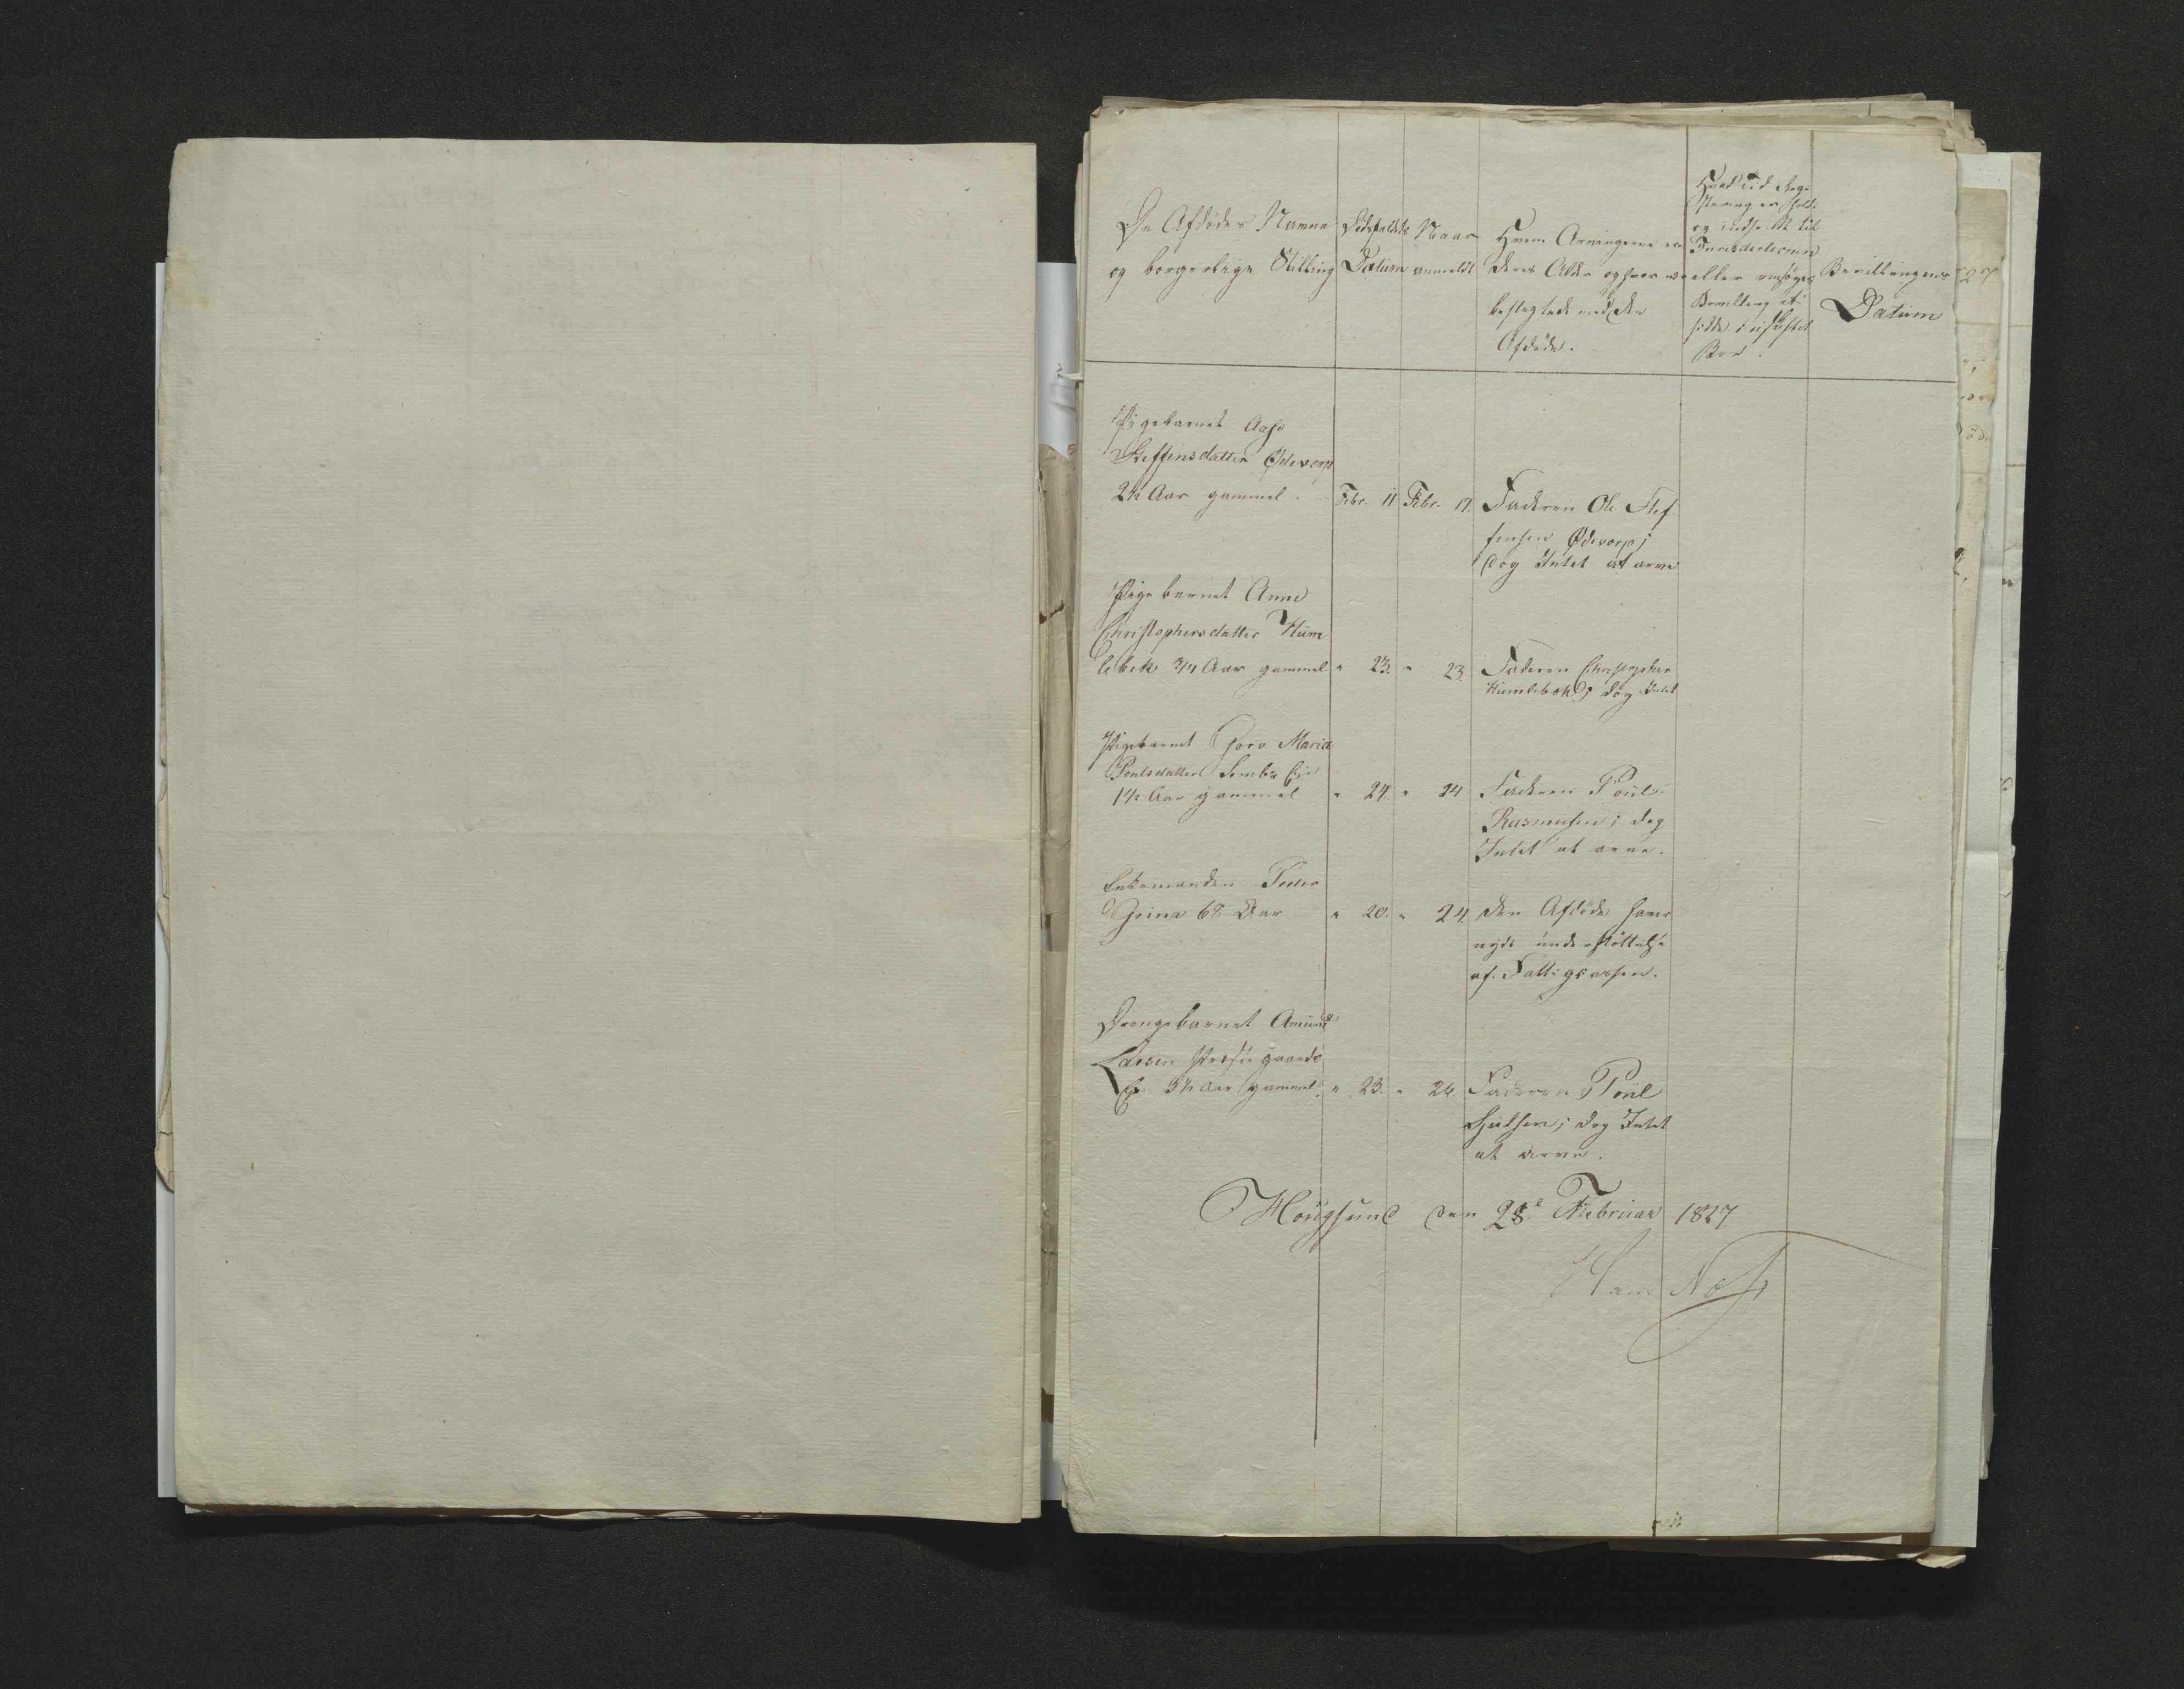 De Afdødes Navne
og borgerlige Stilling
Dødsfaldets
Datum
Naar
anmeldt
Hvem Arvingerne ere
deres Alder og hvor nær
beslægtede med den
Afdøde.
Hvad Tid Regi-
stering er holdt
og indsendt til
Jurisdictionen
eller ansøges
Bevilling at
sidde i uskiftet
Boe.
Bevillingens
Datum
Pigebarnet Aase
Steffensdatter Ødevorp
2½ Aar gammel.
Febr. 11 Febr. 17. Faderen Ole Stef
fensen Ødevorp;
dog Intet at arve
Pigebarnet Anne
Christophersdatter Hum
lebek 3/4 Aar gammel
" 23. " 23. Faderen Christopher
Humlebek; dog Intet
Pigebarnet Goro Maria
Poulsdatter Semb Eie
1½ Aar gammel
" 24. " 24 Faderen Poul
Rasmusen; dog
Intet at arve.
Enkemanden Peder
Grina 68 Aar
" 20. " 24. Den Afdøde haver
nydt understøttelse
af Fattigcassen.
Drengebarnet Amund
Larsen Præstegaards
Eie 3½ Aar gammel.
" 23. " 26 Faderen Poul
dog Intet
at arve.
Hougsund den 28de Februar 1827.
Hans
27